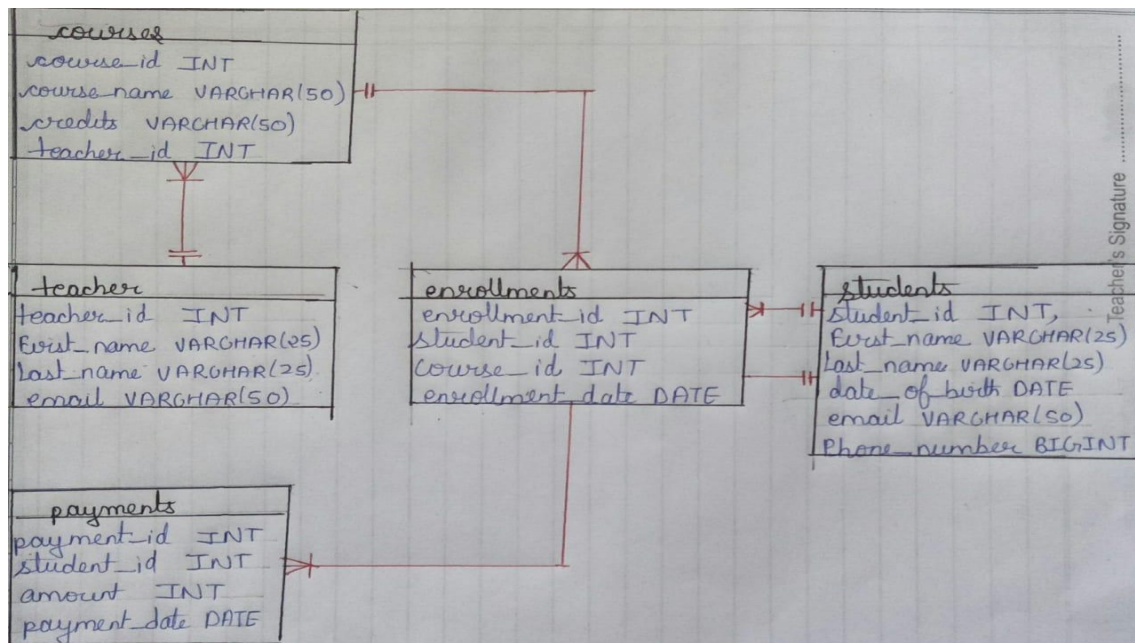 courses
course_id INT
course_name VARCHAR(50)
credits VARCHAR(50)
teacher_id INT
teacher
teacher_id INT
First_name VARCHAR(25)
Last_name VARCHAR(25)
email VARCHAR(50)
enrollments
enrollment_id INT
student_id INT
course_id INT
enrollment_date DATE
students
student_id INT,
First_name VARCHAR(25)
Last_name VARCHAR(25)
date_of_birth DATE
email VARCHAR(50)
Phone_number BIGINT
payments
payment_id INT
student_id INT
amount INT
payment_date DATE
Teacher's Signature ..................